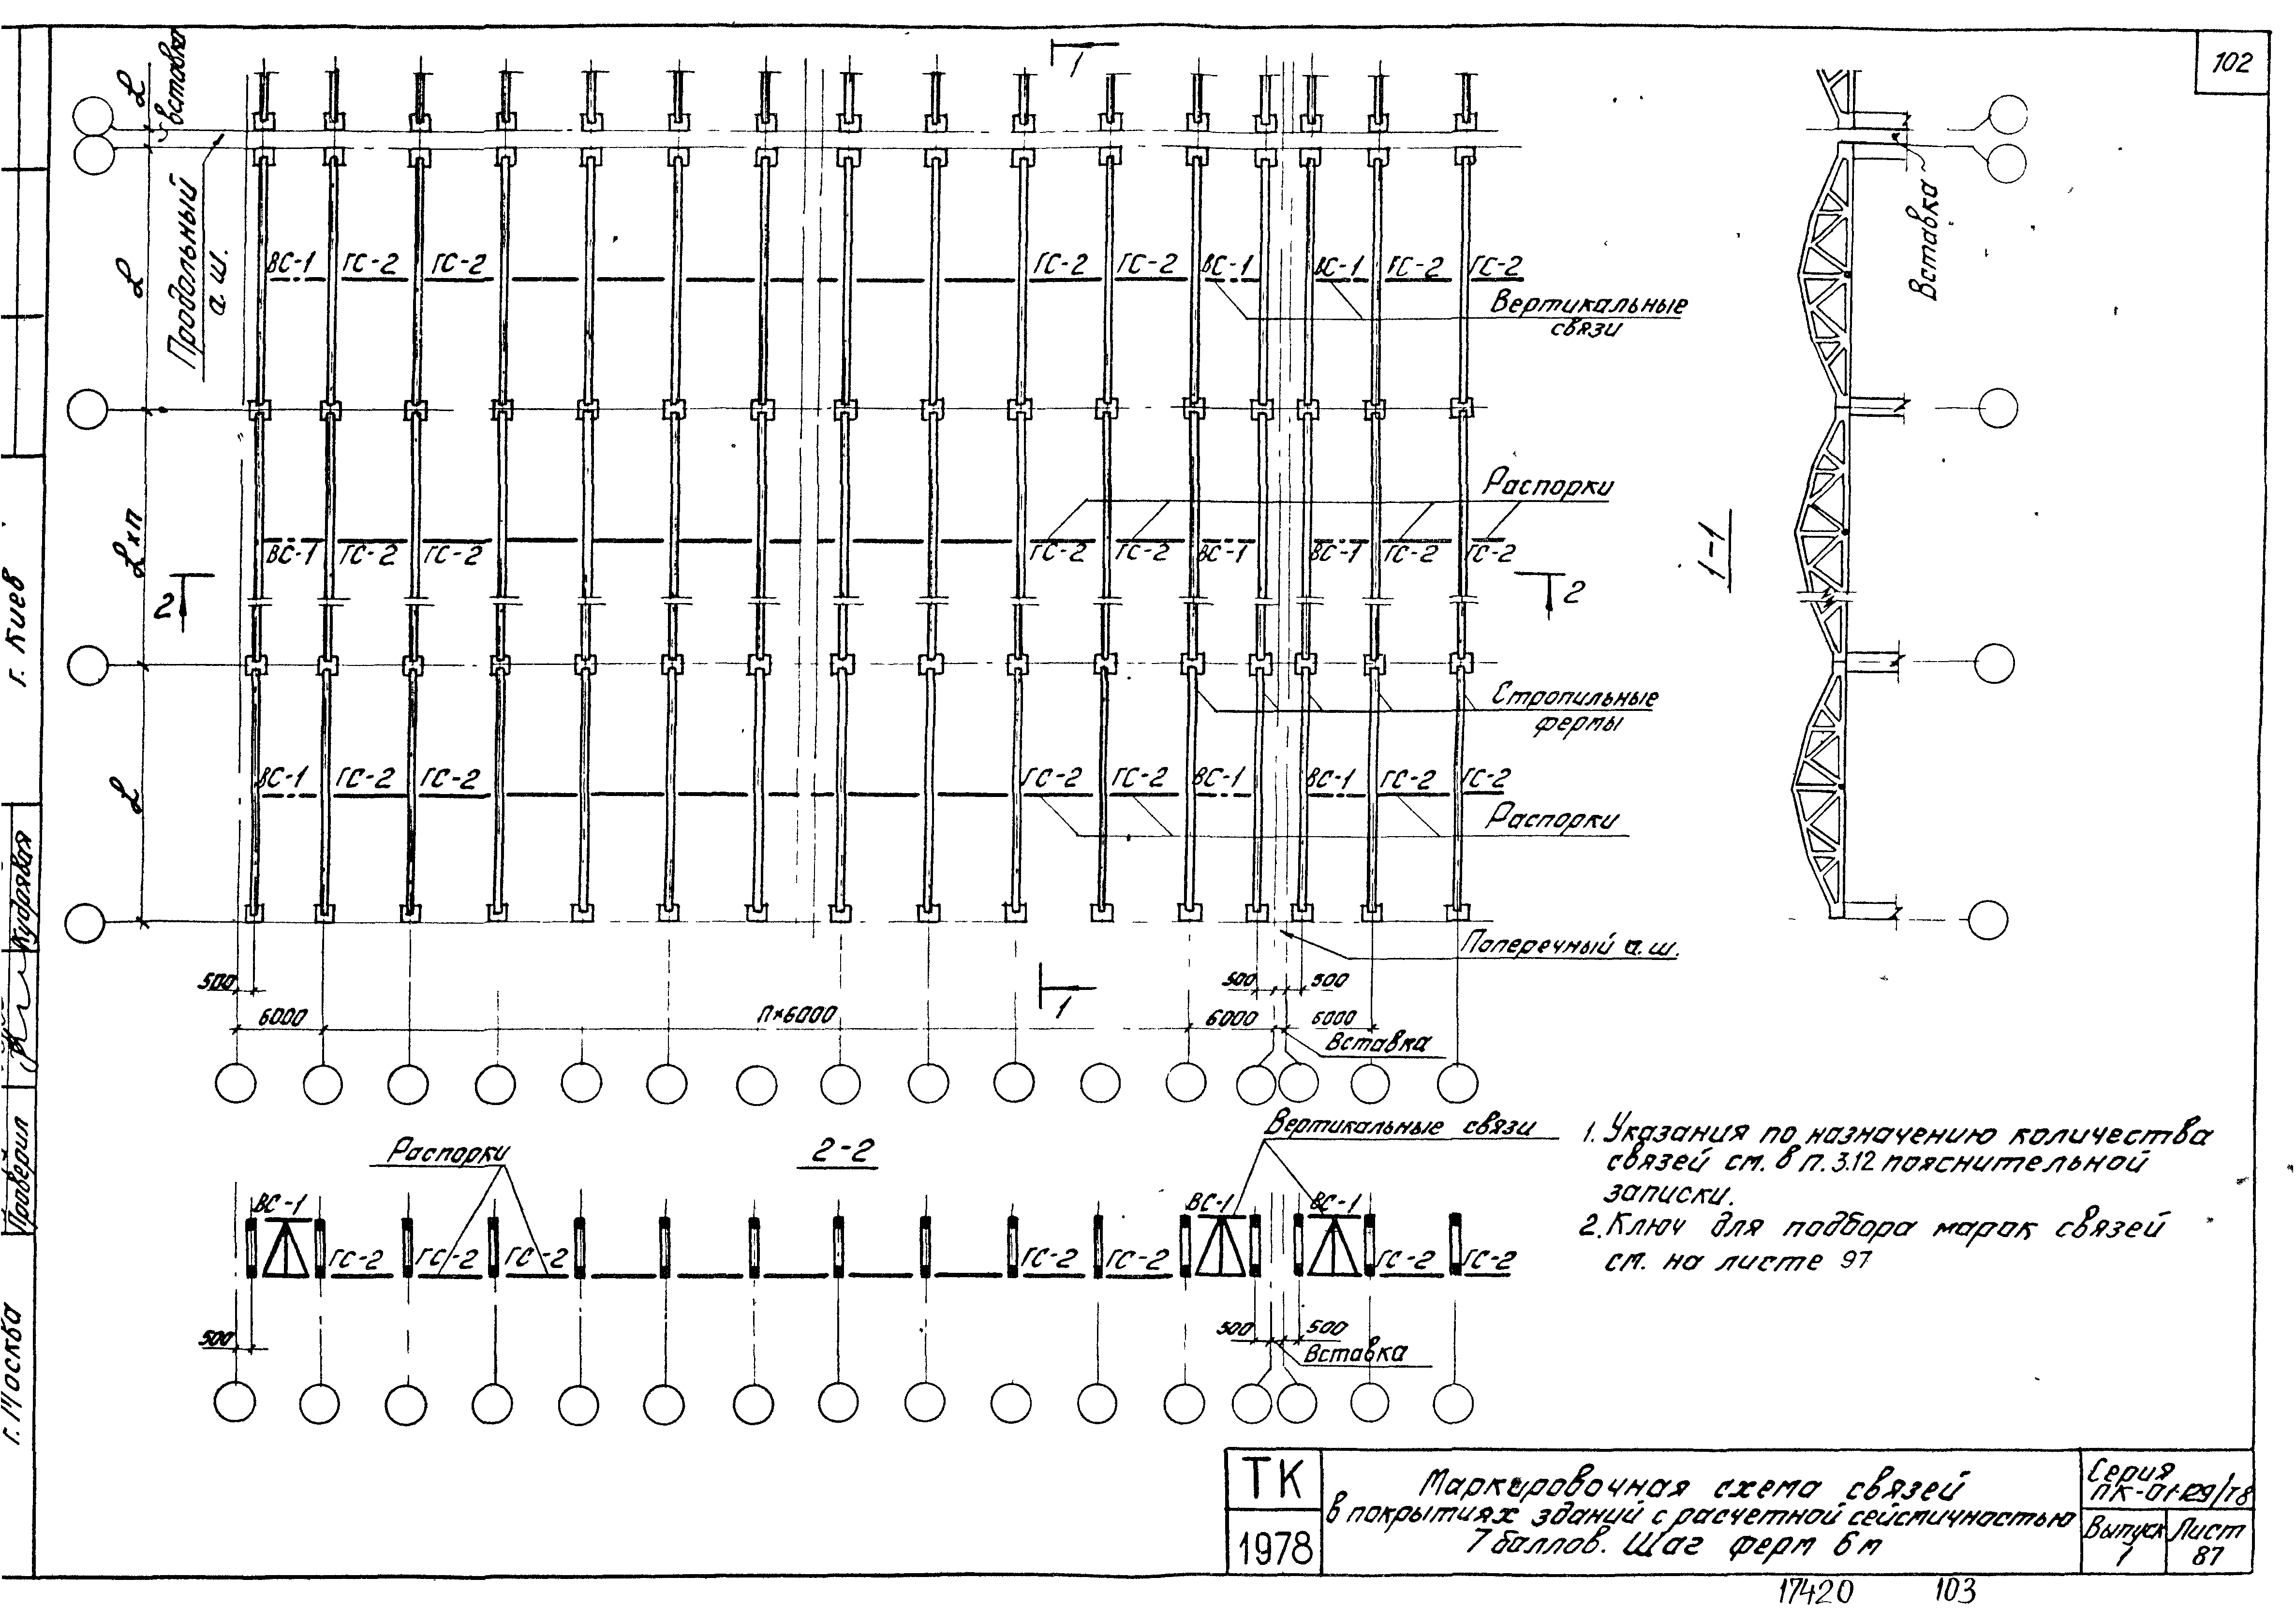 102
1
L
вставка
L
Продольный
а.ш.
ВС-1 ГС-2 ГС-2 ГС-2 ГС-2 ВС-1 ВС-1 ГС-2 ГС-2
Вертикальные
связи
Вставка
Распорки
L×п
ВС-1 ГС-2 ГС-2 ГС-2 ГС-2 ВС-1 ВС-1 ГС-2 ГС-2
1-1
2 2
Стропильные
фермы
L
ВС-1 ГС-2 ГС-2 ГС-2 ГС-2 ВС-1 ВС-1 ГС-2 ГС-2
Распорки
Поперечный а.ш.
500 500 500
1
6000 п×6000 6000 6000
Вставка
Вертикальные связи
Распорки
2-2
ВС-1 ВС-1 ВС-1
ГС-2 ГС-2 ГС-2 ГС-2 ГС-2 ГС-2 ГС-2
500 500 500
Вставка
1. Указания по назначению количества
связей см. в п. 3.12 пояснительной
записки.
2. Ключ для подбора марок связей
см. на листе 97
г. Киев
Кудрявая
Проверил
г. Москва
ТК
1978
Маркировочная схема связей
в покрытиях зданий с расчетной сейсмичностью
7 баллов. Шаг ферм 6м
Серия
ПК-01-129/78
Выпуск
1
Лист
87
17420 103